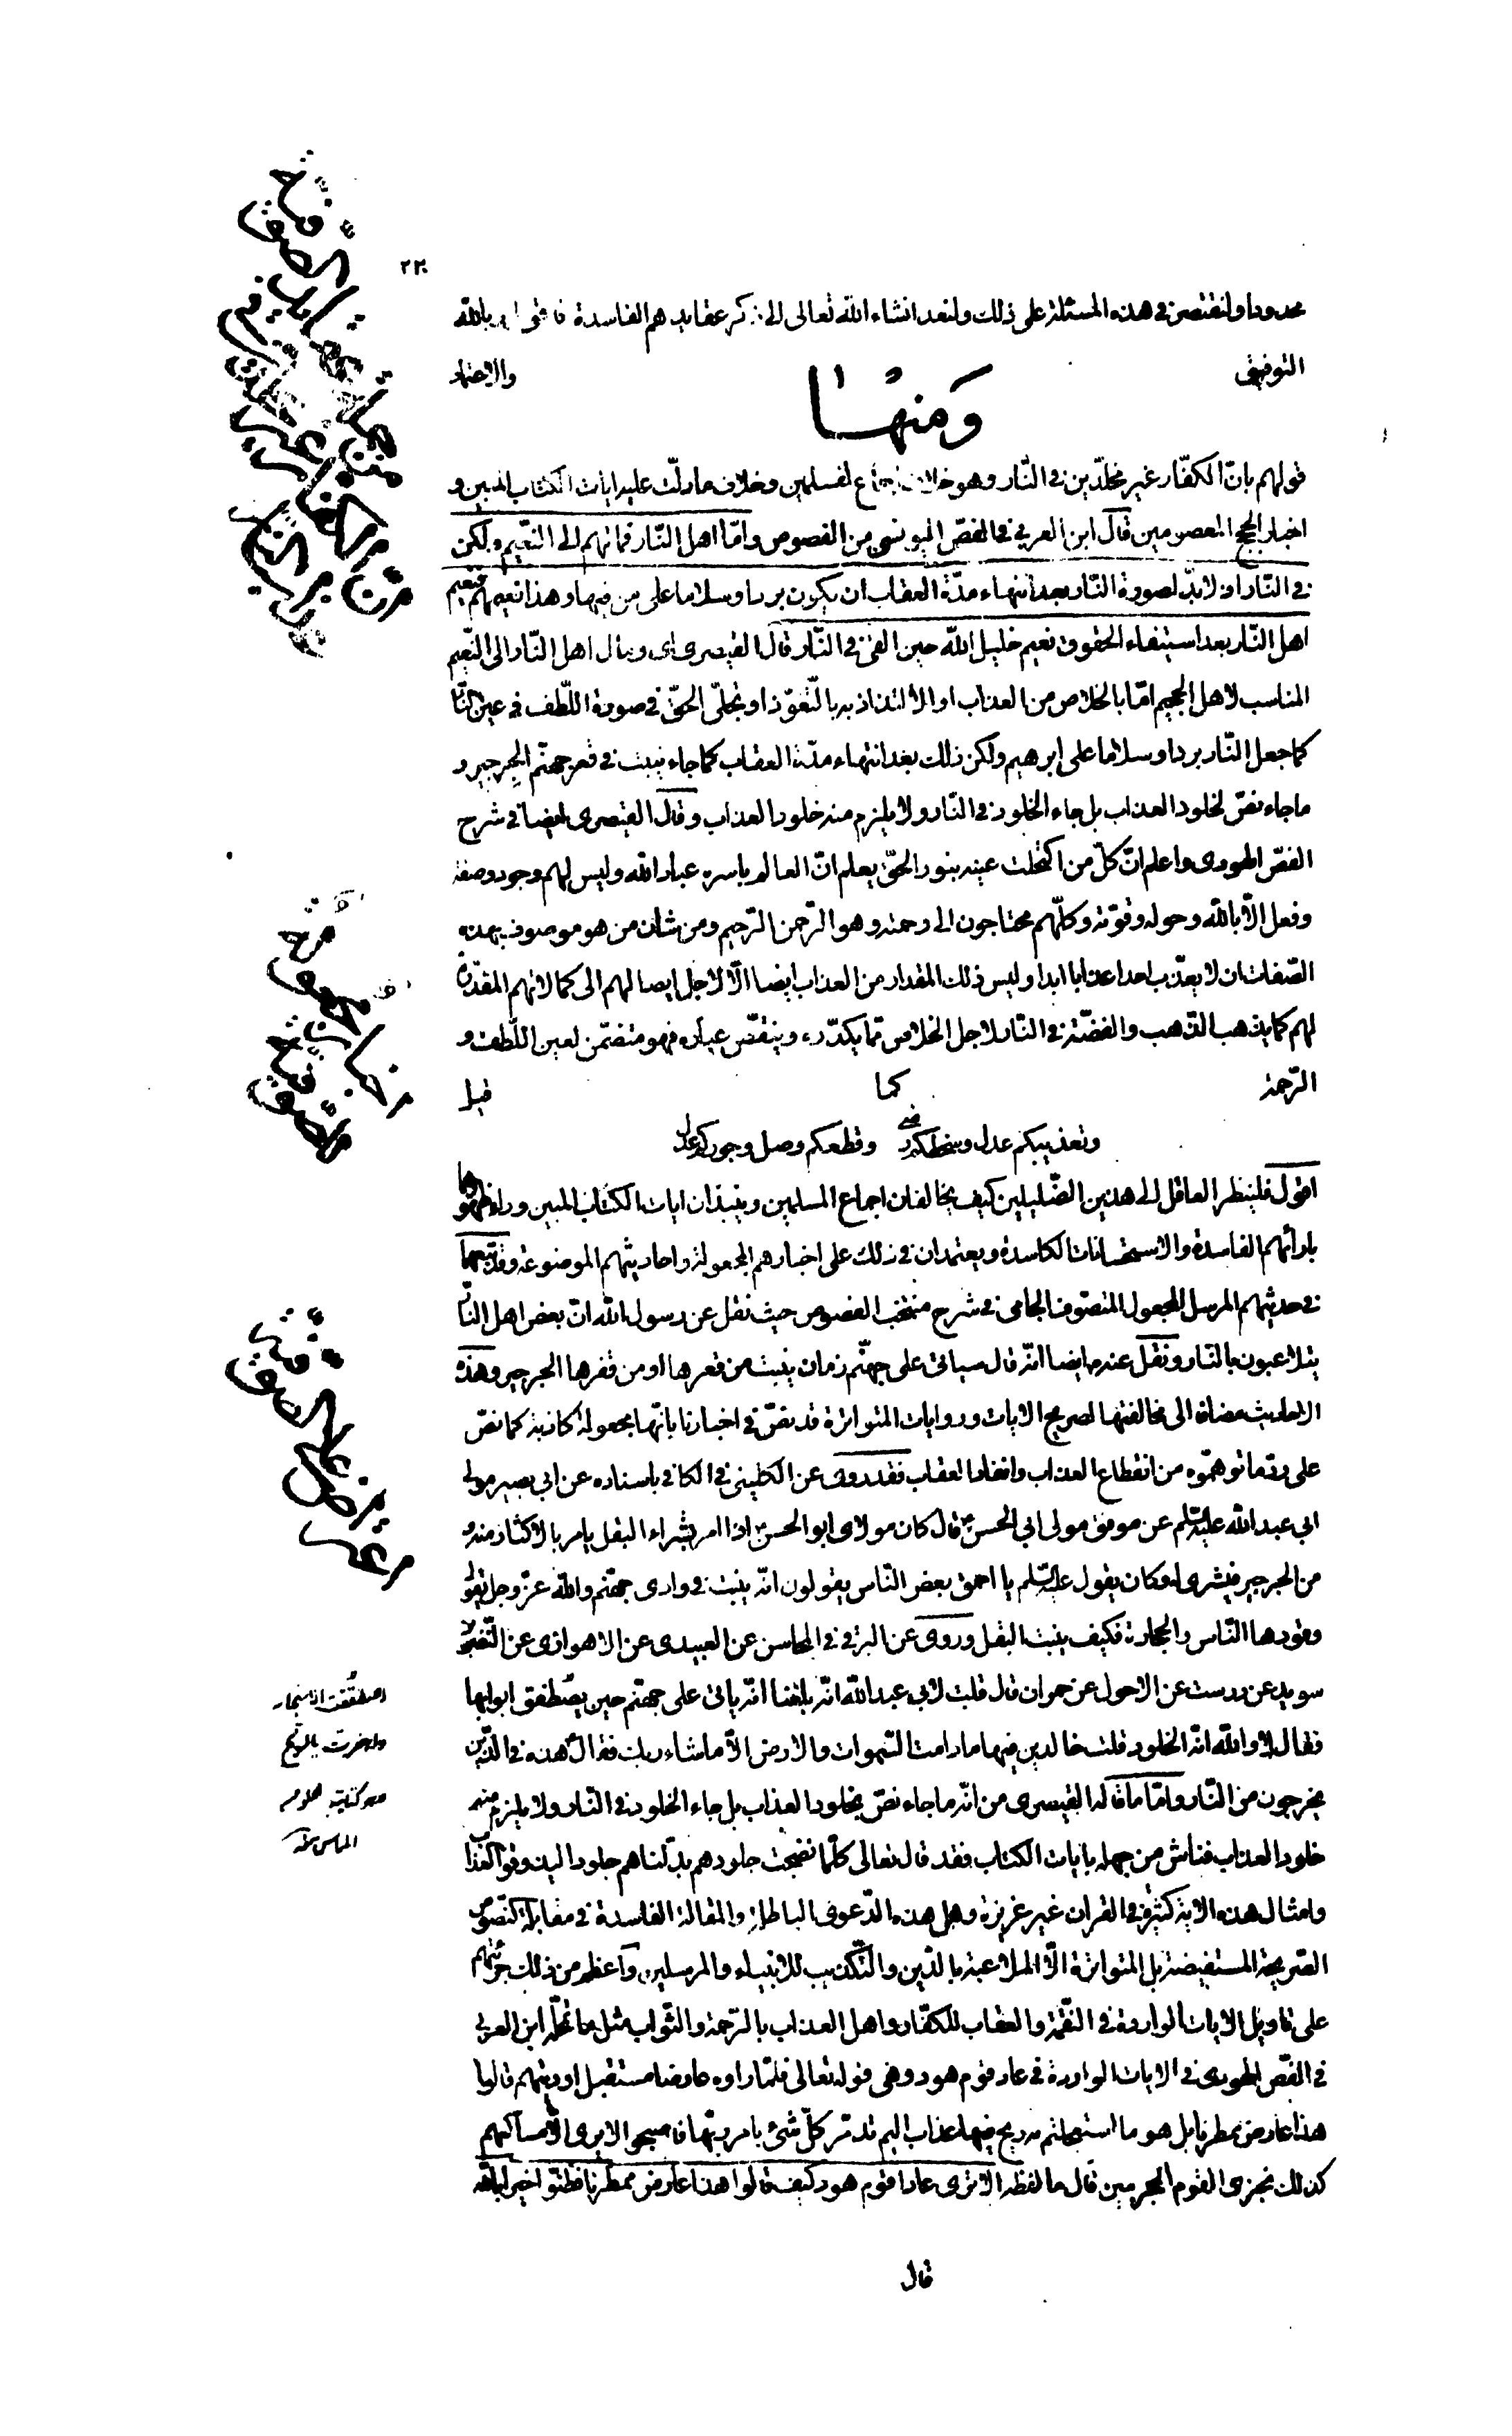 ٢٢٠
محدودا ولنقتصر في هذه المسئلة على ذلك ولنعد انشاء الله تعالى الى ذكر عقايدهم الفاسدة بالله
التوفيق والاعتماد
وَمنهٰا
قولهم بانّ الكفّار غير مخلّدين في النّار وهو خلاف اجماع المسلمين وخلاف ما دلّت عليه ايات الكتاب المبين و
اخبار الحجج المعصومين قال ابن العربي في الفصّ اليونسي من الفصوص وامّا اهل النّار فمالهم الى النّعيم ولكن
في النّار اذ لا بدّ لصورة النّار بعد انتهاء مدّة العقاب ان يكون بردا وسلاما على من فيها وهذا نعيمهم فنعيم
اهل النّار بعد استيفاء الحقوق نعيم خليل الله حين القى في النّار قال القيصرى اى ومال اهل النّار الى النّعيم
المناسب لاهل الجحيم امّا بالخلاص من العذاب او الالتذاذ به بالتّعوّد او تجلّى الحقّ في صورة اللّطف في عين النّا
كما جعل النّار بردا وسلاما على ابرهيم ولكن ذلك بعد انتهاء مدّة العقاب كما جاء ينبت في قعر جهنّم الجرجير و
ما جاء نصّ لخلود العذاب بل جاء الخلود في النّار ولا يلزم منه خلود العذاب وقال القيصرى ايضا في شرح
الفصّ الهودى واعلم انّ كلّ من اكتحلت عينه بنور الحقّ يعلم انّ العالم باسره عباد الله وليس لهم وجود وصفة
وفعل الّا بالله وحوله وقوّته وكلّهم محتاجون الى رحمته وهو الرّحمن الرّحيم ومن شان من هو موصوف بهذه
الصّفات ان لا يعذّب احدا عذابا ابدا وليس ذلك المقدار من العذاب ايضا الّا لاجل ايصالهم الى كمالاتهم المقدّرة
لهم كما يذهب الذّهب والفضّة في النّار لاجل الخلاص ممّا يكدّره وينقّص عياره فهو متضمّن لعين اللّطف و
الرّحمة كما قيل
وتعذيبكم عدل وسخطكم رضى وقطعكم وصل وجوركم عدل
اقول فلينظر العاقل الى هذين الضّليلين كيف يخالفان اجماع المسلمين وينبذان ايات الكتاب المبين وراء ظهورهما
بارائهم الفاسدة والاستحسانات الكاسدة ويعتمدان في ذلك على اخبارهم المجعولة واحاديثهم الموضوعة وقد تبعهما
في حديثهم المرسل المجعول المتصوّف الجامى في شرح منتخب الفصوص حيث نقل عن رسول الله انّ بعض اهل النّا
يتلاعبون بالنّار ونقل عنه ايضا انّه قال سياتى على جهنّم زمان ينبت من قعرها او من قفرها الجرجير وهذه
الاحاديث مضافة الى مخالفتها لصريح الايات وروايات المتواترة قد نصّ في اخبارنا بانّها مجعولة كاذبة كما نصّ
على ردّ ما توهّموه من انقطاع العذاب وانقضاء العقاب فقد روى عن الكلينى في الكافي باسناده عن ابي بصير مولى
ابي عبد الله عليه السّلم عن موفق مولى ابي الحسن قال كان مولاى ابو الحسن اذا امر بشراء البقل يامر بالاكثار منه و
من الجرجير فيشرى له وكان يقول عليه السّلم يا احمق بعض النّاس يقولون انّه ينبت في وادى جهنّم والله عزّ وجل يقول
وقودها النّاس والحجارة فكيف ينبت البقل وروى عن البرقي في المحاسن عن العبيدى عن الاهوازى عن النّضر
سويد عن درست عن الاحول عن حمران قال قلت لابي عبد الله انّه بلغنا انّه ياتى على جهنّم حين يصطفق ابوابها
فقال لا والله انّه الخلود قلت خالدين فيها ما دامت السّموات والارض الّا ما شاء ربك فقال هذه في الّذين
يخرجون من النّار وامّا ما قاله القيصرى من انّه ما جاء نصّ بخلود العذاب بل جاء الخلود في النّار ولا يلزم منه
خلود العذاب فناش من جهله بايات الكتاب فقد قال تعالى كلّما نضجت جلودهم بدّلناهم جلودا ليذوقوا العذاب
وامثال هذه الاية كثيرة في القران غير عزيزة وهل هذه الدّعوى الباطلة والمقالة الفاسدة في مقابلة النّصوص
الصّريحة المستفيضة بل المتواترة الّا الملاعبة بالدّين والتّكذيب للانبياء والمرسلين واعظم من ذلك جرئتهم
على تاويل الايات الواردة في النّقمة والعقاب للكفّار واهل العذاب بالرّحمة والثّواب مثل ما تمحّله ابن العربي
في الفصّ الهودى في الايات الواردة في عاد قوم هود وهي قوله تعالى فلمّا راوه عارضا مستقبل اوديتهم قالوا
هذا عارض ممطرنا بل هو ما استعجلتم به ريح فيها عذاب اليم تدمّر كلّ شئ بامر ربّها فاصبحوا لا يرى الّا مساكنهم
كذلك نجزى القوم المجرمين قال ما لفظه الا ترى عادا قوم هود كيف قالوا هذا عارض ممطرنا فظنّوا خيرا بالله
قال
اصطفقت الاشجار
اهتزت بالريح